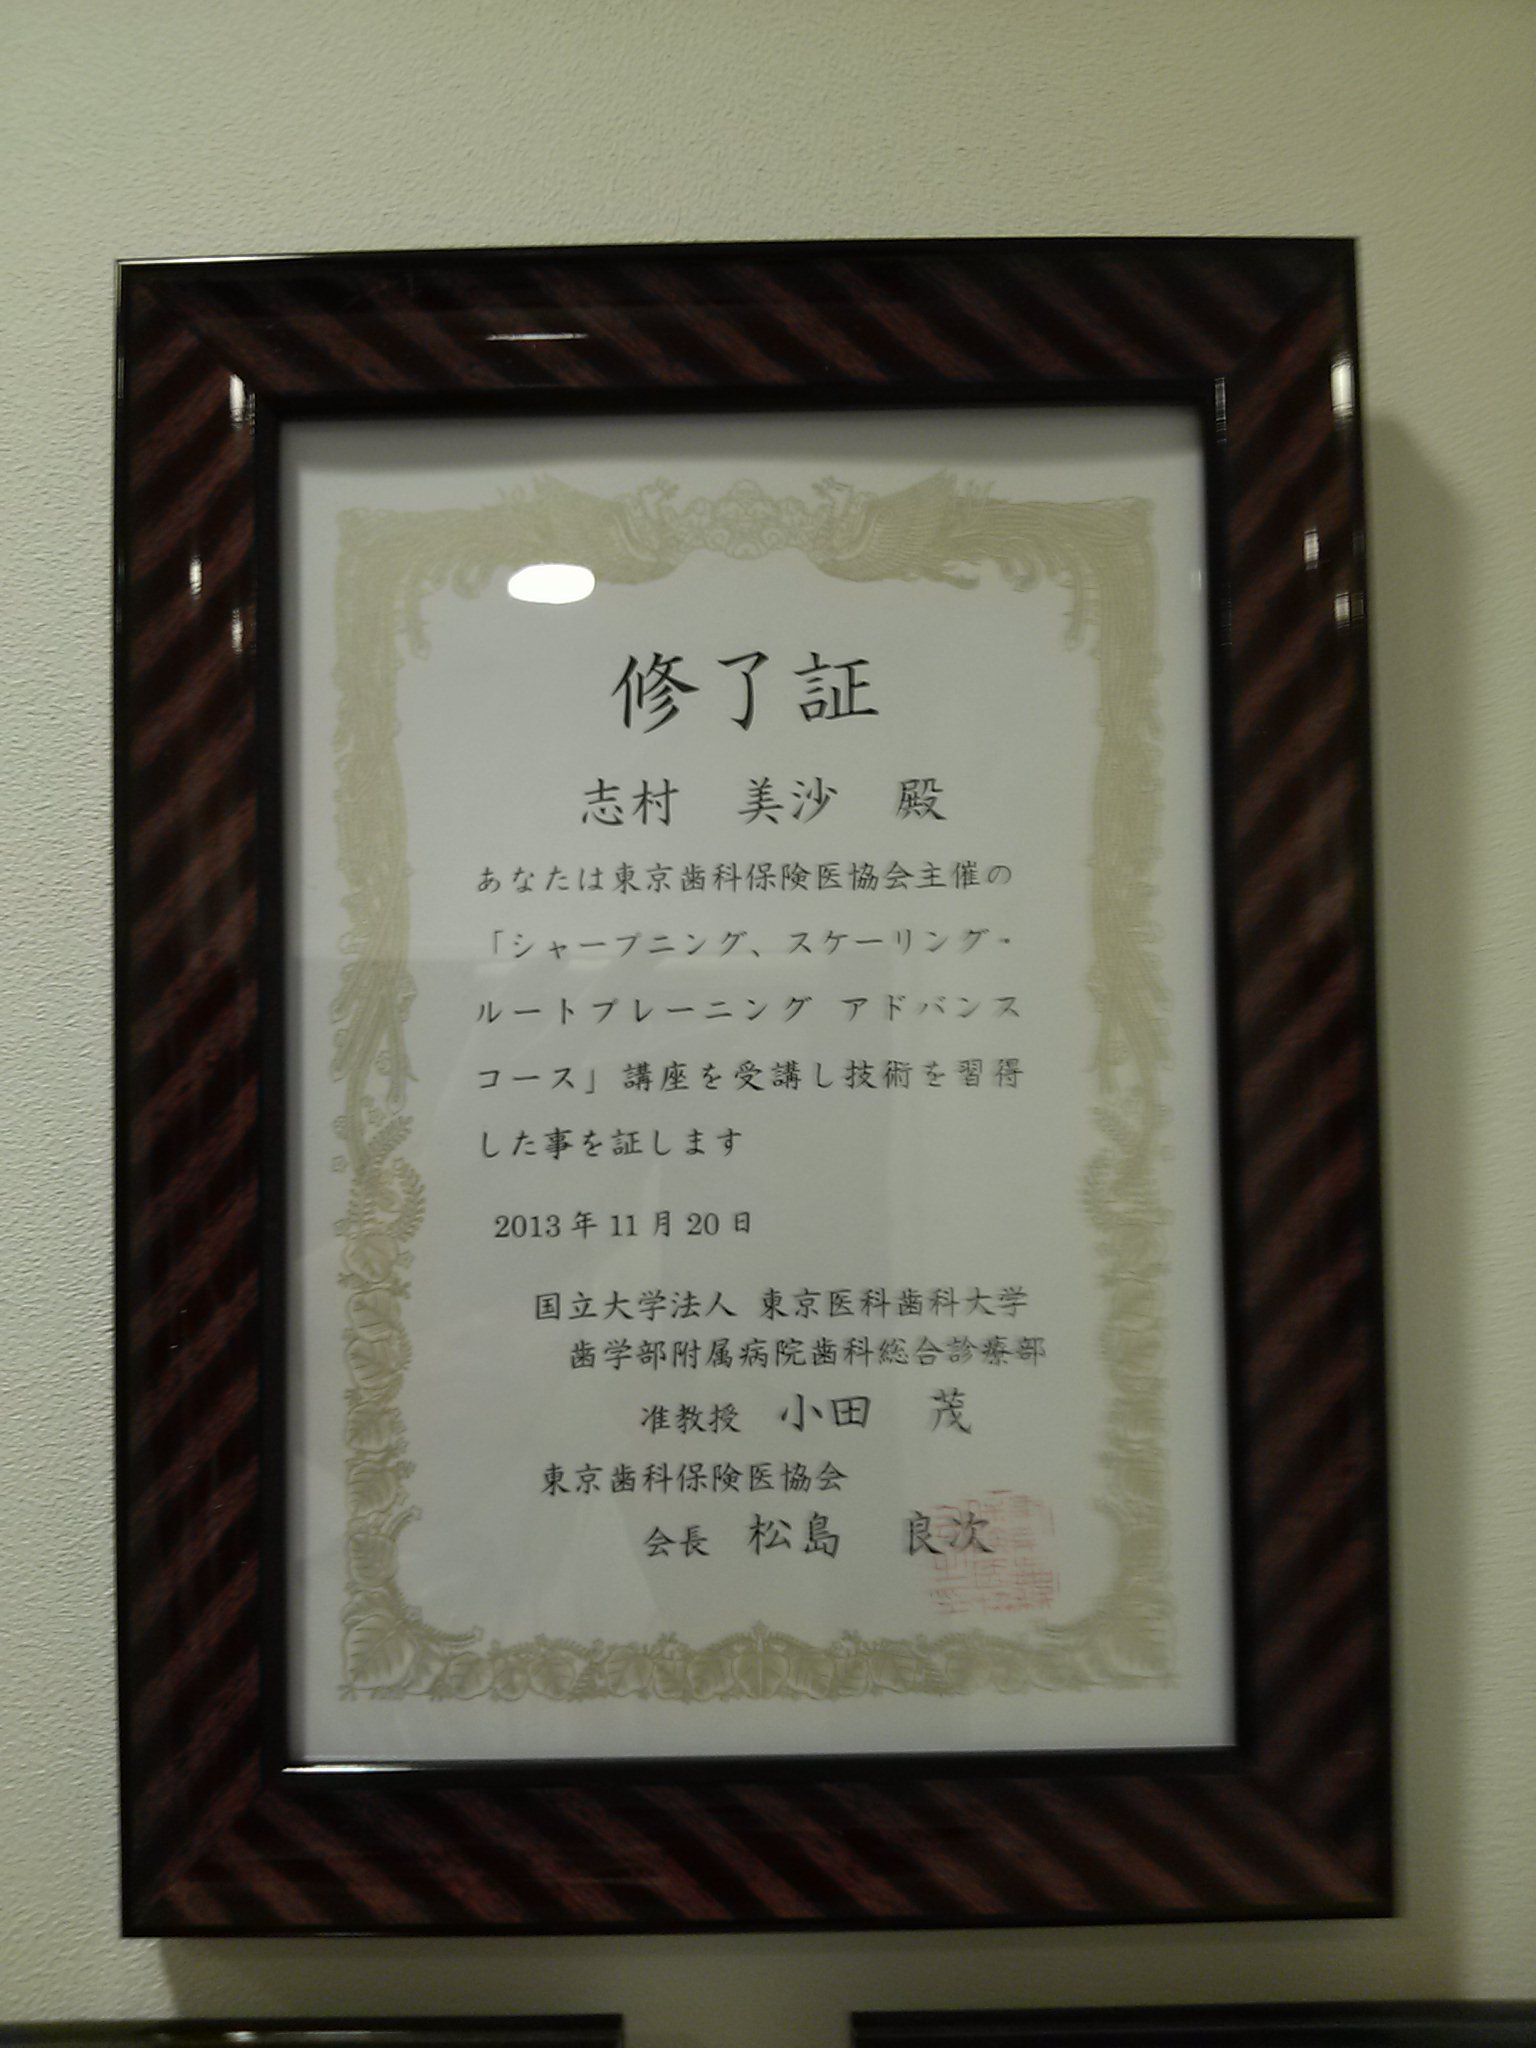 修了証
志村 美沙 殿
あなたは東京歯科保険医協会主催の
「シャープニング、スケーリング・
ルートプレーニング アドバンス
コース」講座を受講し技術を習得
した事を証します
2013年11月20日
国立大学法人 東京医科歯科大学
歯学部附属病院歯科総合診療部
准教授 小田 茂
東京歯科保険医協会
会長 松島 良次